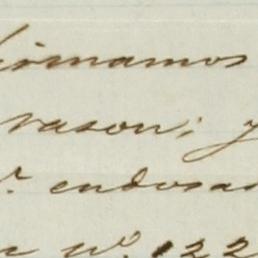 firmamos
rason; y
r. endosa
e nº. 122